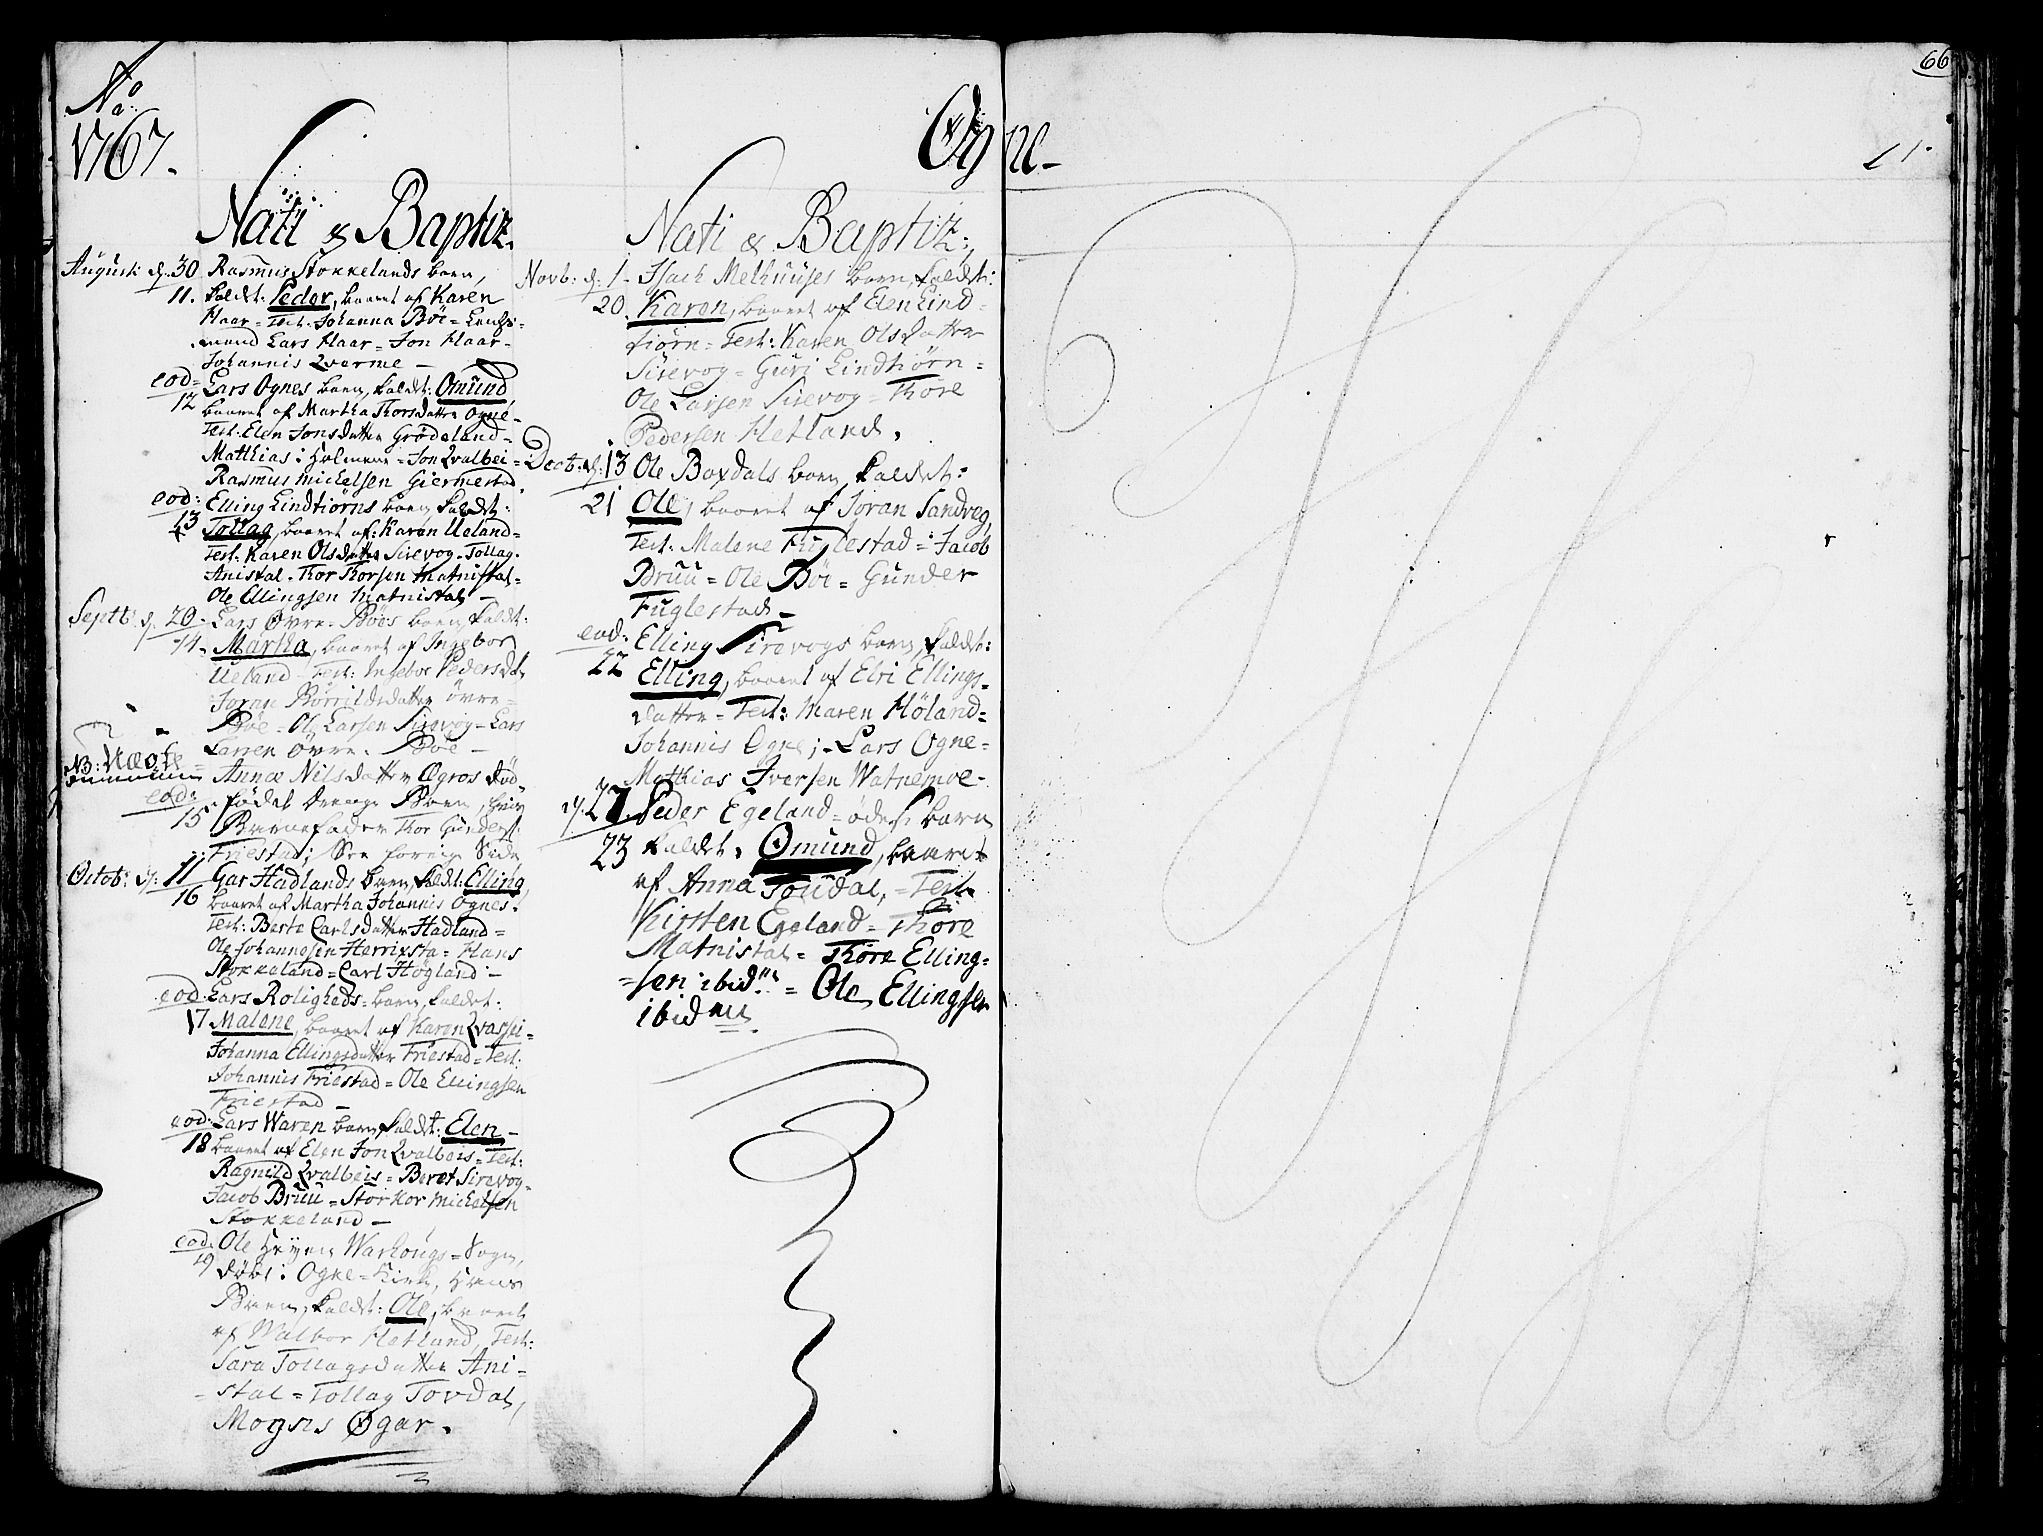 66
No
1767.
Ogne-
Nati & Baptiz.
August: d. 30. Rasmus Stokkelands barn,
11. kaldet: Peder, baaret af Karen
Haar = Test. Johanna Böe = Lends-
mand Lars Haar = Jon Haar -
Johannis Qverme -
eod: Lars Ognes barn, kaldet: Omund,
12 baaret af Martha Thorsdatter Ogne -
Test. Elen Jonsdatter Grödeland -
Matthias i Holmene - Jon Qvalbei =
Rasmus Michelsen Giermestad.
eod: Elling Lindtiörns barn kaldet:
13 Tollag, baaret af: Karen Ueland =
Test. Karen Olsdatter Sirevog - Tollag.
Anistal - Thor Thorsen Matnistal =
Ole Ellingsen Matnistal -
Septb: d. 20. Lars Øvre-Böes barn, kaldt:
14. Martha, baaret af Ingebor
Ueland - Test: Ingebor Pedersdat
Joran Börrildsdatter övre -
Böe = Ol Larsen Sirevog - Lars
Larsen Övre - Böe -
NB: Uægte = Annæ Nilsdatter Ægros död-
eod: födet Drenge Barn,
15 Barnefader Thor Gunders:
Friestad; See forrige Side
Octob: d: 11 Gar Hadlands barn, kaldt: Elling,
16 baaret af Martha Johannis Ognes.
Test: Berte Carlsdatter Hadland =
Ole Johannesen Herrixsta = Hans
Stokkeland = Carl Högland -
eod. Lars Roligheds = barn, kaldet:
17 Malene, baaret af Karen Qvassei =
Johanna Ellingsdatter Friestad = Test:
Johannis Friestad = Ole Ellingsen
Friestad -
eod: Lars Waren barn, kaldt: Elen -
18 baaret af Elen Jon Qvalbeis = Test:
Ragnild Qvalbeis = Beret Sirevog -
Jacob Bruu = Storkor Michelsen
Stokkeland -
eod. Ole Warhougs = Sogn,
19 döbt i Ogne = Kirke, Hans
Barn, kaldet: Ole, baaret
af Walbor Hetland, Test:
Sara Tollagsdatter Ani-
- stal = Tollag Tovdal,
Mogns Øgar.
Nati & Baptiz:
Novb: d: 1. Isach Melhuuses barn, kaldet:
20. Karen, baaret af Elen Lind-
tiörn = Test: Karen Olsdatter
Sirevog = Guri Lindtiörn =
Ole Larsen Sirevog = Thore
Pedersen Hetland.
Decb: d: 13 Ole Boxdals barn kaldet:
21 Ole, baaret af Joran Sandveg,
Test: Malene Fuglestad = Jacob
Bruu = Ole Böe = Gunder
Fuglestad -
eod: Elling Sirevogs barn, kaldet:
22 Elling, baaret af Elri Ellings-
datter = Test: Maren Höland =
Johannis Ogne; - Lars Ogne =
Matthias Iversen Watnemoe -
d. 27. Peder Egeland = ödes barn
23 kaldet, Omund, baaret
af Anna Toudal, = Test.
Kirsten Egeland = Thore
Matnistal = Thore Elling=
=sen ibid: = Ole Ellingsen
ibidem